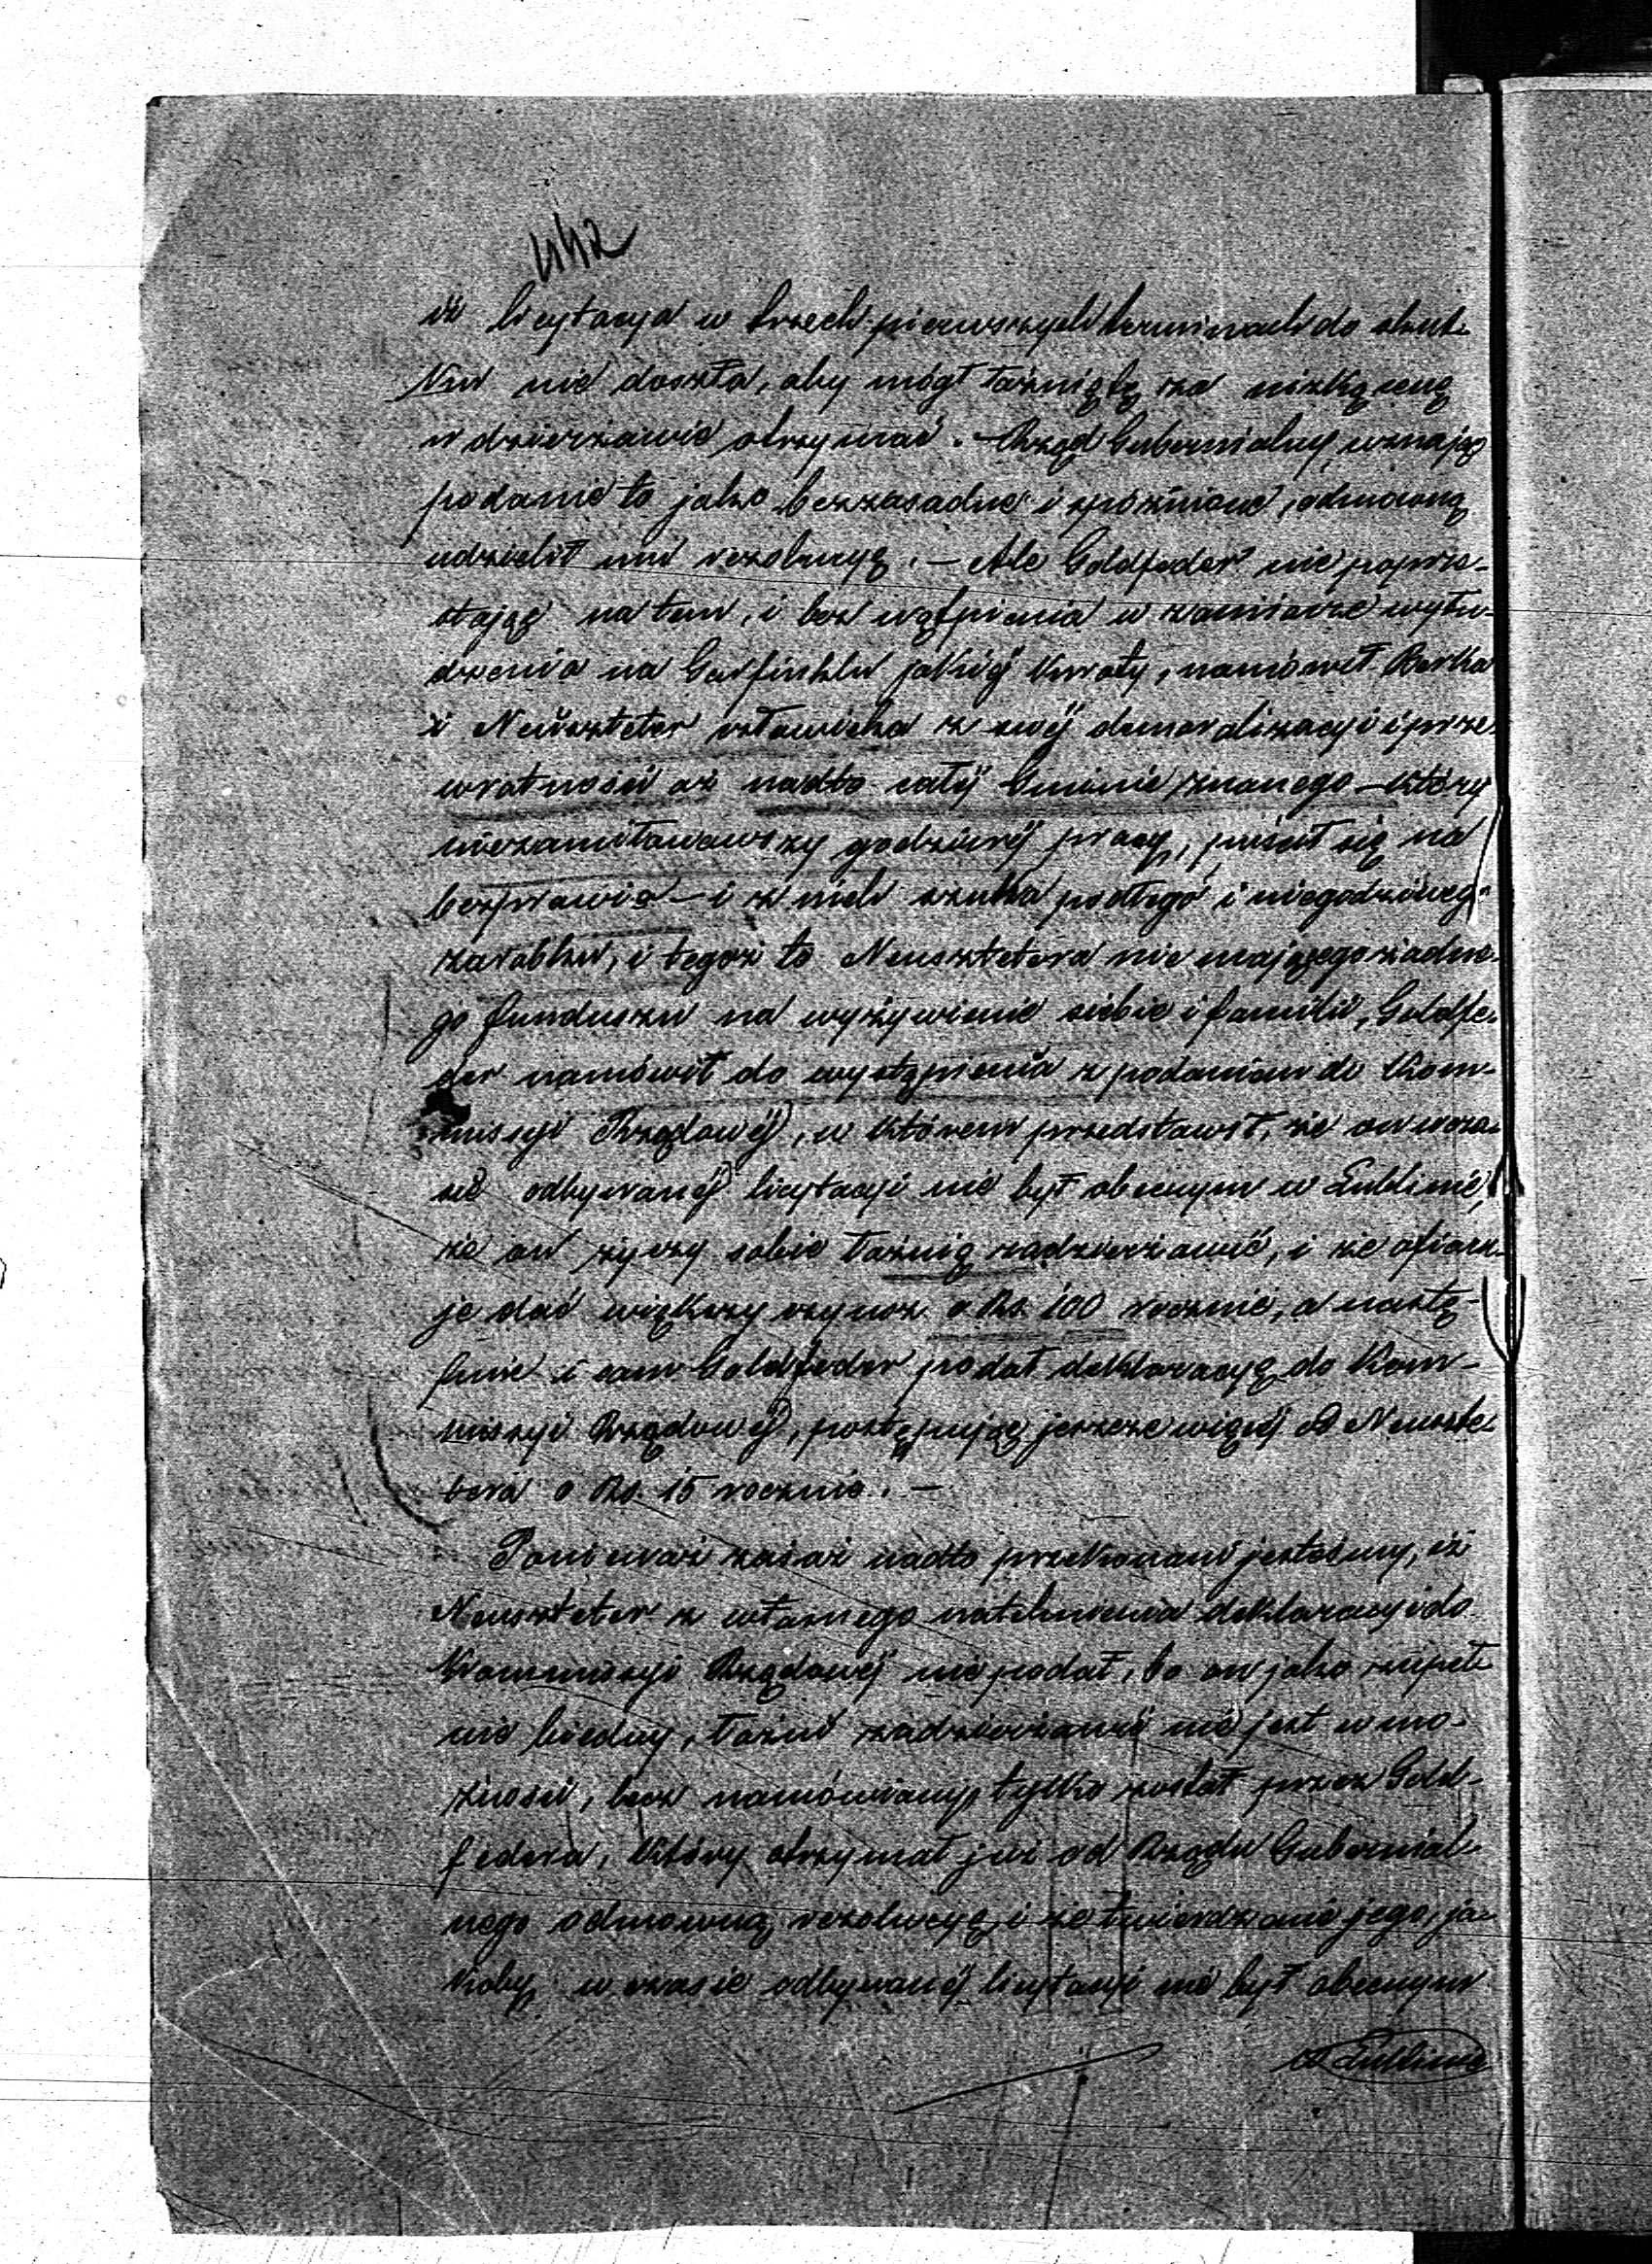 442
iż licytacya w trzech pierwszych terminach do skut-
ku nie doszła, aby mógł łaźnią tę za nizką cenę
w dzierżawie otrzymać. – Rząd Gubernialny uznając
podanie to jako bezzasadne i spóźnione, odmowną
udzielił mu rezolucyę. – Ale Goldfeder nie poprze-
stając na tem, i bez wątpienia w zamiarze wyłu-
dzenia na Garfinklu jakiéj kwoty, namówił Berka
Neuszteter człowieka z swéj demoralizacyi i prze-
wrotności aż nadto całéj Gminie znanego – który
niezamiłowawszy godziwéj pracy, puścił się na
bezprawia – i z nich szuka podłego i niegodziwego
zarobku, i tegoż to Neusztetera nie mającego żadne-
go funduszu na wyżywienie siebie i familii, Goldfe-
der namówił do wystąpienia z podaniem do Kom-
missyi Rządowéj, w którem przedstawił, że on w cza-
sie odbywanéj licytacyi nie był obecnym w Lublinie,
że on życzy sobie łaźnią zadzierżawić, i że ofiaru-
je dać większy czynsz o Rs. 100 rocznie, a nastę-
pnie i sam Goldfeder podał deklaracyę do Kom-
missyi Rządowéj, postępując jeszcze więcéj od Neuszte-
tera o Rs. 15 rocznie. –
Ponieważ zaś aż nadto przekonani jesteśmy, iż
Neuszteter z własnego natchnienia deklaracyi do
Kommissyi Rządowéj nie podał, bo on jako zupeł-
nie biedny, łaźni zadzierżawić nie jest w mo-
żności, lecz namówiony tylko został przez Gold-
federa, który otrzymał już od Rządu Gubernial-
nego odmowną rezolucyę, i że twierdzenie jego, ja-
koby w czasie odbywanéj licytacyi nie był obecnym
w Lublinie